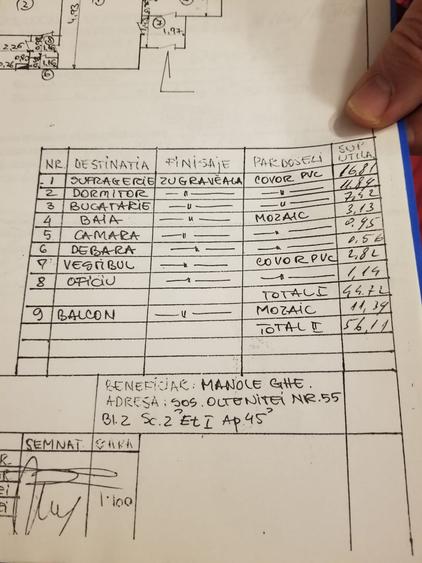 2
4.93
7
1.97
2.26
6
NR. DESTINATIA FINISAJE PARDOSELI SUP. UTILA
1 SUFRAGERIE ZUGRAVEALA COVOR PVC 16,81
2 DORMITOR —"— —"— 11,84
3 BUCATARIE —"— —"— 7,52
4 BAIA —"— MOZAIC 3,13
5 CAMARA —"— —"— 0,95
6 DEBARA —"— —"— 0,56
7 VESTIBUL —"— COVOR PVC 2,82
8 OFICIU —"— —"— 1,14
TOTAL I 44,72
9 BALCON —"— MOZAIC 11,39
TOTAL II 56,11
BENEFICIAR: MANOLE GHE.
ADRESA: SOS. OLTENITEI NR. 55
Bl. 2 Sc. 2 Et I Ap 45
SEMNAT SCARA
1:100